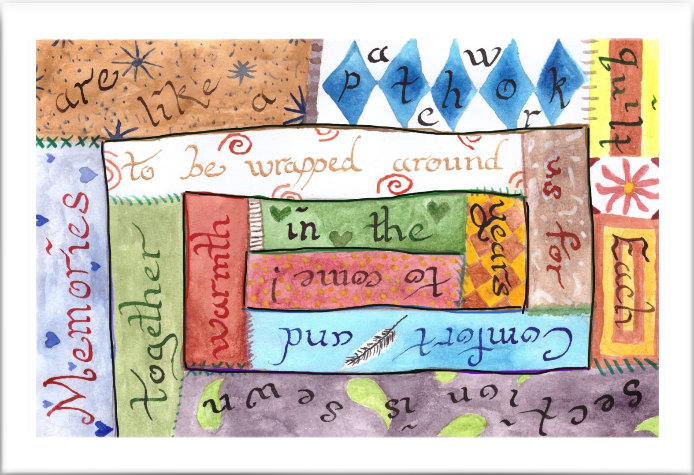 Memories
are like a
patchwork
quilt~
Each
section is sewn
together
to be wrapped around
us for
Comfort and
warmth
in the
years
to come!